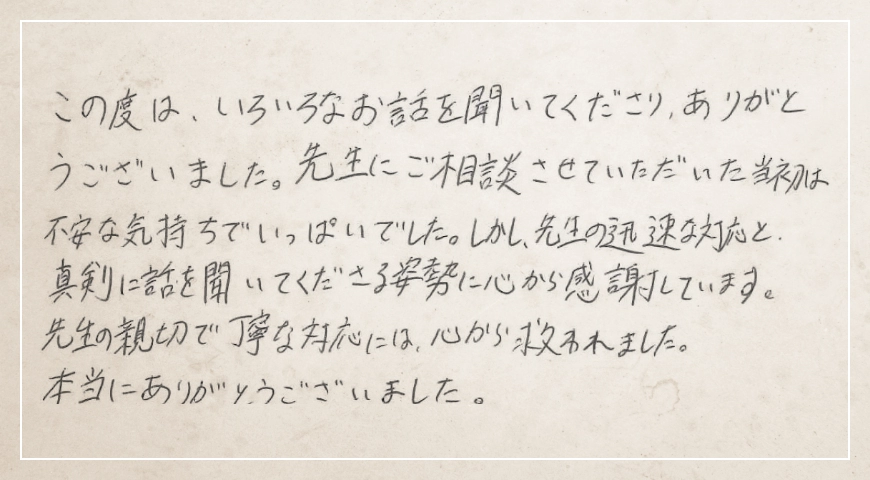 この度は、いろいろなお話を聞いてくださり、ありがと
うございました。先生にご相談させていただいた当初は
不安な気持ちでいっぱいでした。しかし、先生の迅速な対応と、
真剣に話を聞いてくださる姿勢に心から感謝しています。
先生の親切で丁寧な対応には、心から救われました。
本当にありがとうございました。